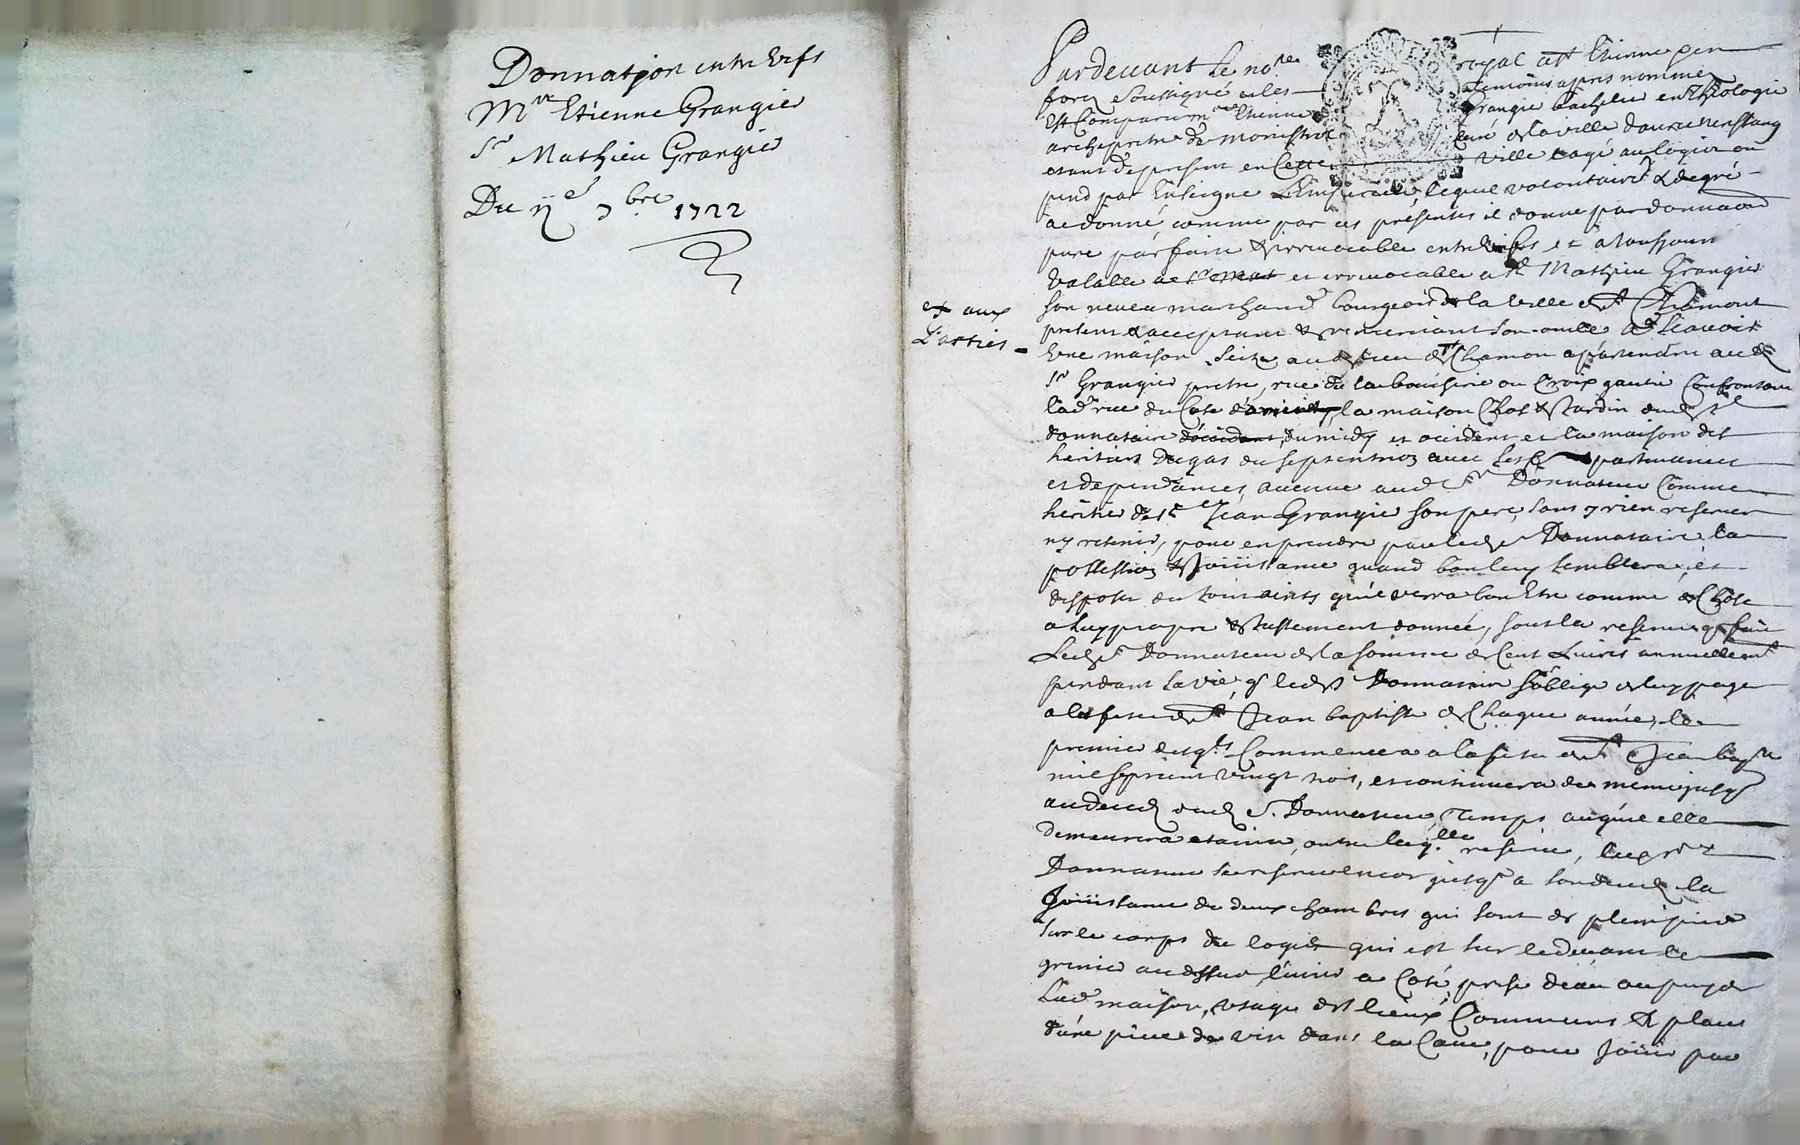 Donnation entre Vifs
Mre Etienne Grangier
Sr Mathieu Grangier
Du 7bre 1722
et aux
Parties
Pardevant Le nore royal a St Etienne en
forez soussigné et les temoins apres nommes
Est Comparu mre Etienne Grangier bachelier en Théologie
archipretre de monistrol Curé de la ville
etant de present en Cette ville logé au logis ou
pend par Enseigne lequel volontairemt & de gré
a donné comme par ces presentes il donne par donnaon
pure parfaite & irrevocable entre Vifs et a tousjours
Valable et irrevocable a Sr Mathieu Grangier
son neveu marchand bourgeois de la ville de St Chamont
present & acceptant & remerciant son oncle Scavoir
Une maison Scize audit lieu de St Chamon apartenante audt
Sr Grangier pretre, rue de la boucherie ou Croix gautier Confrontant
lade rue du Coté la maison Chos & Jardin dudt Sr
donnataire du midy et occident et la maison des
heritiers Dugas du septentrion avec ses apartenances
et dependances avenue audt Sr Donnateur Comme
heritier de Sr Jean Grangier son pere, sans y rien reserver
ny retenir, pour en prendre par ledt Sr Donnataire la
possession & Joüissance quand bon luy semblera, et
disposer du tout ainsy qu'il verra bon Etre comme de Chose
a luy propre & Justement donnée, sous la reserve que fait
Ledt Sr Donnateur de la somme de Cent Livres annuellemt
pendant sa vie, q ledt Sr Donnatair s'oblige de luy payer
a la feste de St Jean baptiste de Chaque année, le
premier desqls Commencera a la feste de St Jean bapte
mil sept cent vingt trois, et continuera de meme jusqs
au deced dudt Sr Donnateur Temps auquel elle
demeurera etainte, outre laqlle reserve, ledt Sr
Donnateur se reserve encor jusqs a son deced la
Joüissance de deux chambres qui sont de plein pied
sur le corps de logis qui est sur le devant le
grenier au dessus, a Coté, prise d'eau au puy de
Lade maison, usage des lieux Communs & place
d'une piece de vin dans la Cave, pour Joüir par